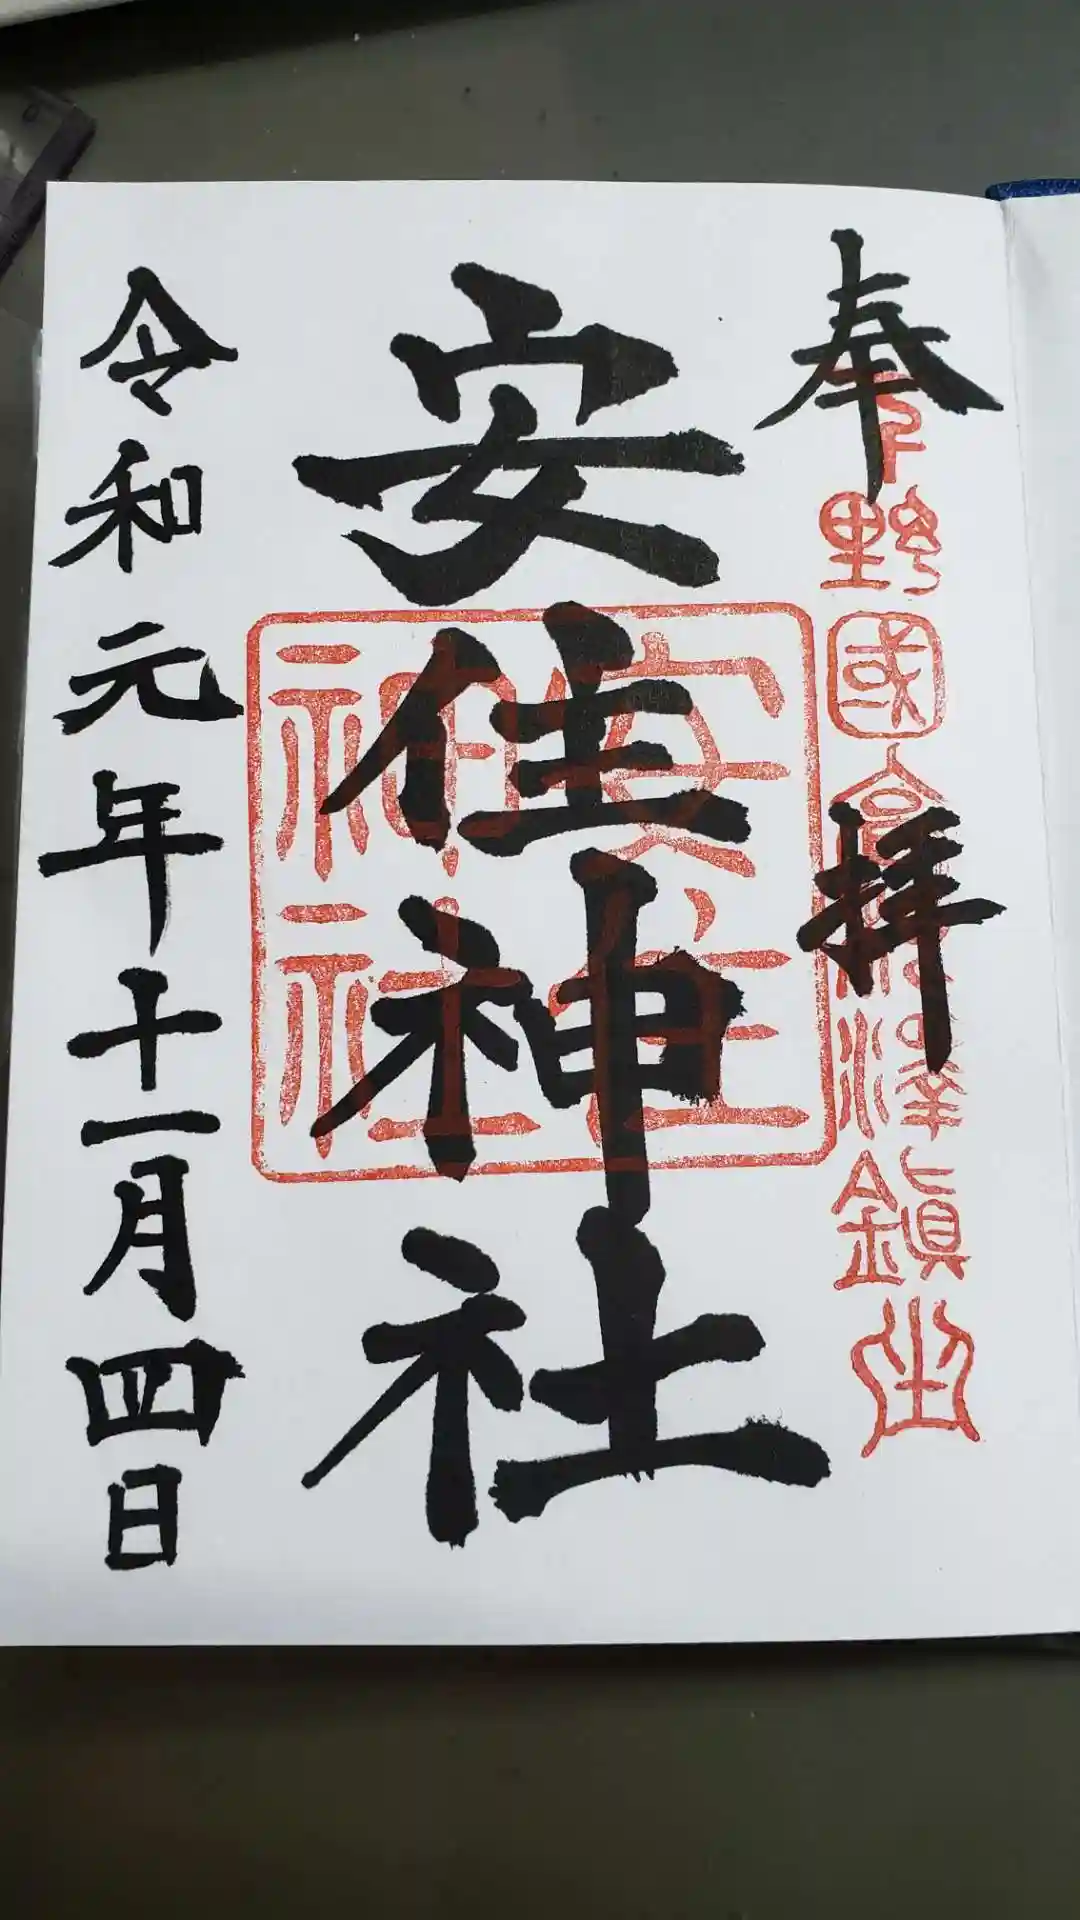 奉拝
下野國高根澤鎮坐
安住神社
安住
神社
令和元年十一月四日